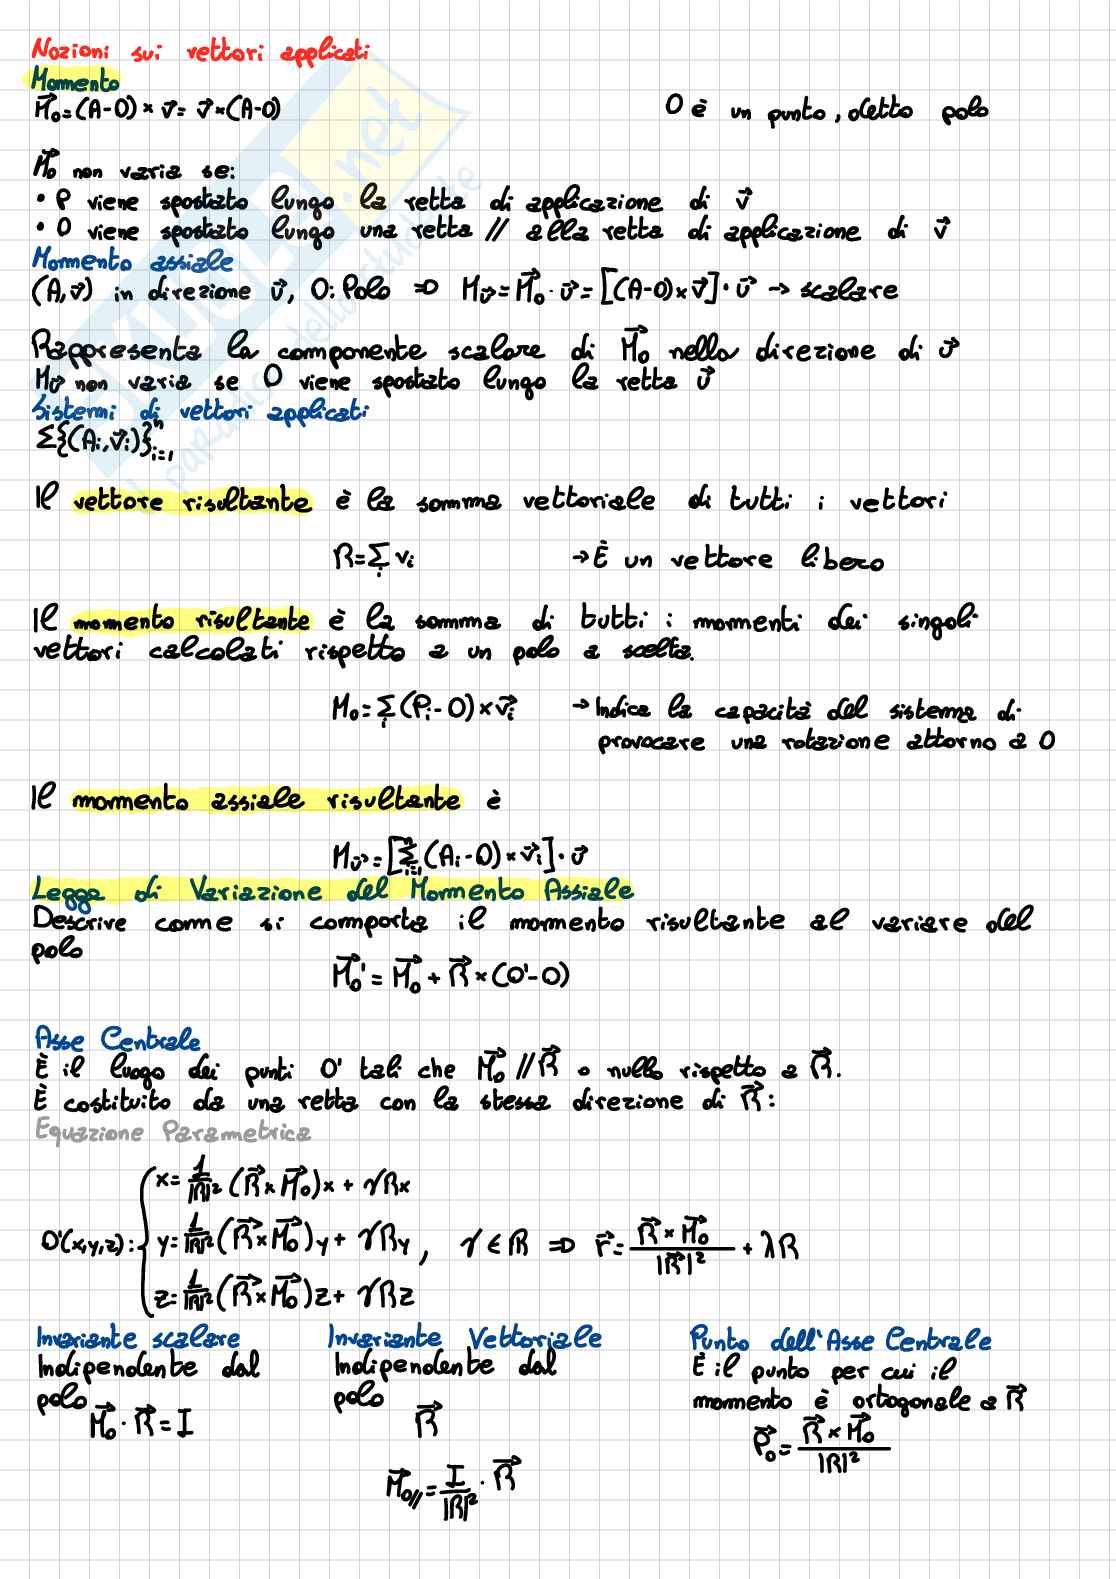 Nozioni sui vettori applicati
Momento
M⃗₀=(A-O) × v⃗ = v⃗ × (A-O) O è un punto, detto polo
M⃗₀ non varia se:
• P viene spostato lungo la retta di applicazione di v⃗
• O viene spostato lungo una retta // alla retta di applicazione di v⃗
Momento assiale
(A, v⃗) in direzione u⃗, O: Polo ⇒ M_u⃗ = M⃗₀ · u⃗ = [(A-O) × v⃗] · u⃗ → scalare
Rappresenta la componente scalare di M⃗₀ nella direzione di u⃗
M_u⃗ non varia se O viene spostato lungo la retta u⃗
Sistemi di vettori applicati
Σ{(Aᵢ, v⃗ᵢ)}ⁿᵢ₌₁
Il vettore risultante è la somma vettoriale di tutti i vettori
R = Σᵢ vᵢ → È un vettore libero
Il momento risultante è la somma di tutti i momenti dei singoli
vettori calcolati rispetto a un polo a scelta.
M₀ = Σᵢ (Pᵢ - O) × v⃗ᵢ → Indica la capacità del sistema di
provocare una rotazione attorno a O
Il momento assiale risultante è
M_u⃗ = [Σⁿᵢ₌₁ (Aᵢ - O) × v⃗ᵢ] · u⃗
Legge di Variazione del Momento Assiale
Descrive come si comporta il momento risultante al variare del
polo
M⃗₀' = M⃗₀ + R⃗ × (O' - O)
Asse Centrale
È il luogo dei punti O' tali che M⃗₀ // R⃗ o nullo rispetto a R⃗.
È costituito da una retta con la stessa direzione di R⃗:
Equazione Parametrica
x = 1/|R|² (R⃗ × M⃗₀)x + γRx
O'(x,y,z): { y = 1/|R|² (R⃗ × M⃗₀)y + γRy, γ ∈ R ⇒ r⃗ = (R⃗ × M⃗₀)/|R⃗|² + λR
z = 1/|R|² (R⃗ × M⃗₀)z + γRz
Invariante scalare Invariante Vettoriale Punto dell'Asse Centrale
Indipendente dal Indipendente dal È il punto per cui il
polo polo momento è ortogonale a R⃗
M⃗₀ · R⃗ = I R⃗ P⃗₀ = (R⃗ × M⃗₀)/|R|²
M⃗₀// = I/|R|² · R⃗